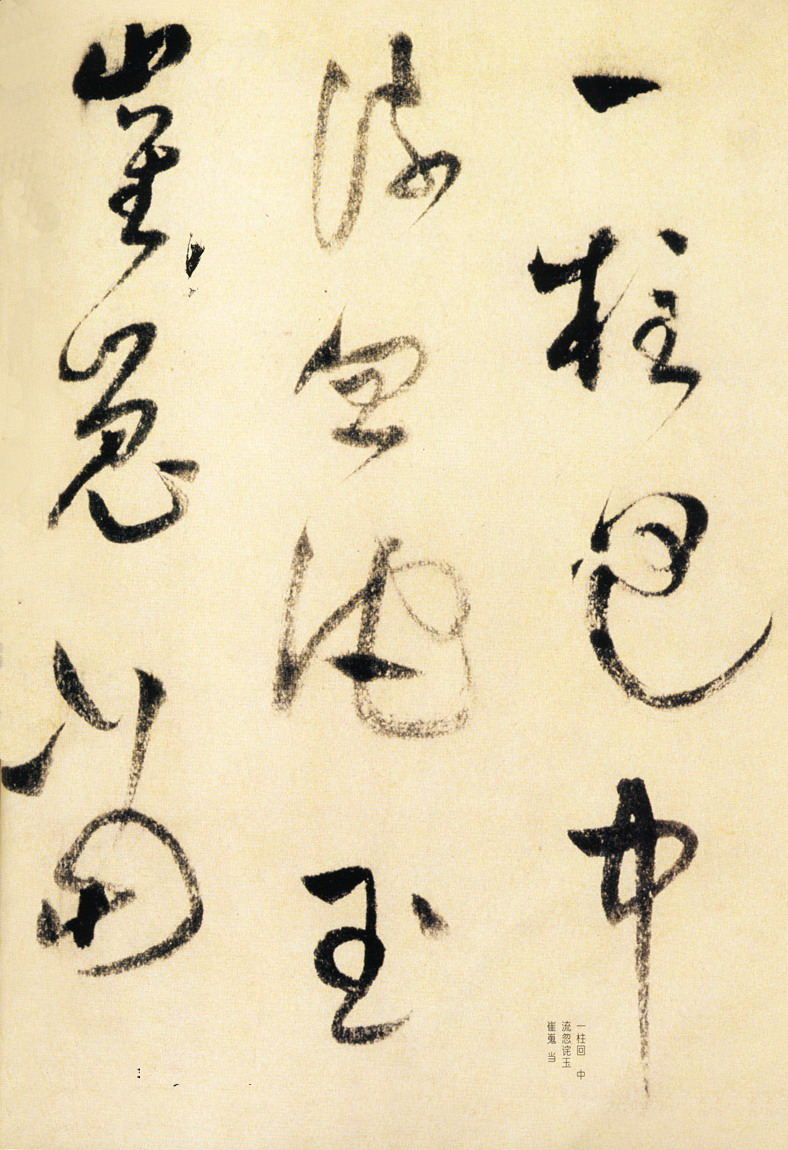 一柱回中
流忽诧玉
崔嵬当
一柱回 中
流忽诧玉
崔嵬 当